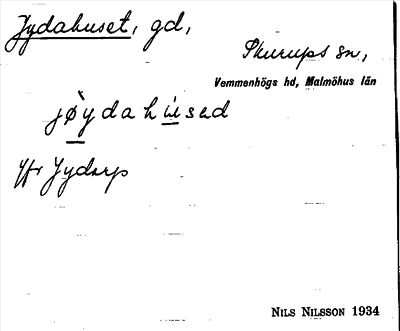 Jydahuset, gd,
Skurups sn,
Vemmenhögs hd, Malmöhus län
jø̀ydahu̇̀sad
Jfr Jydarp
NILS NILSSON 1934